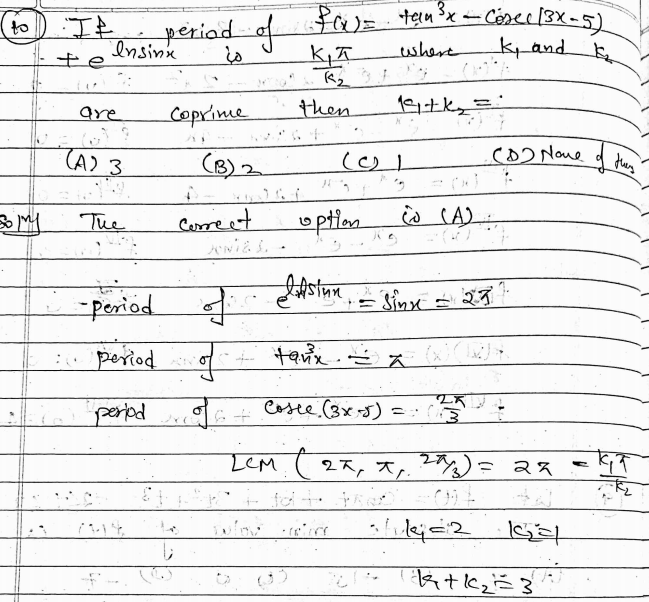 (10) If period of f(x) = tan³x - cosec(3x-5)
+ e^lnsinx is K₁π/K₂ where K₁ and K₂
are coprime then K₁+K₂ =
(A) 3 (B) 2 (C) 1 (D) None of this
Solⁿ The correct option is (A)
period of e^lnsinx = sinx = 2π
period of tan³x = π
period of cosec (3x-5) = 2π/3
LCM (2π, π, 2π/3) = 2π = K₁π/K₂
K₁=2 K₂=1
K₁+K₂=3